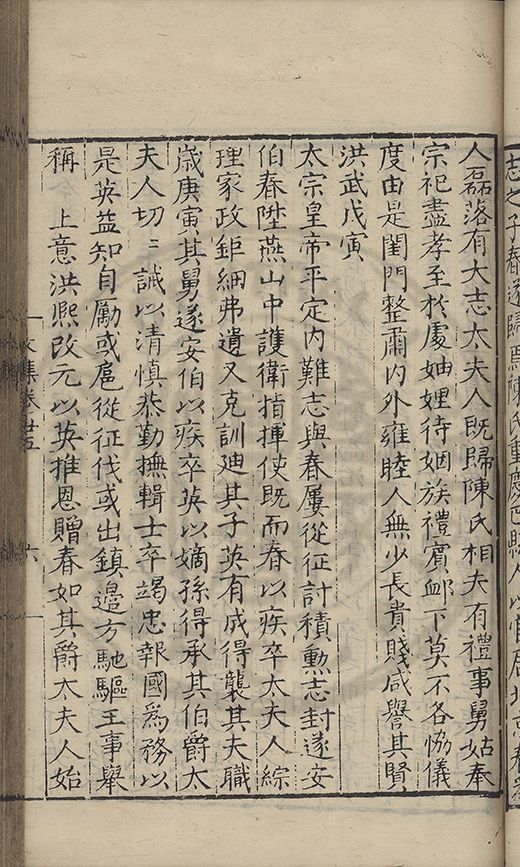 志之子春遂歸焉陳氏重慶巴縣人以官居北京春為
人磊落有大志太夫人既歸陳氏相夫有禮事舅姑奉
宗祀盡孝至於處妯娌待姻族禮賓䘏下莫不各恊儀
度由是閨門整肅内外雍睦人無少長貴賤咸譽其賢
洪武戊寅
太宗皇帝平定内難志與春屢從征討積勲志封遂安
伯春陞燕山中護衛指揮使既而春以疾卒太夫人綜
理家政鉅細弗遺又克訓廸其子英有成得襲其夫職
歲庚寅其舅遂安伯以疾卒英以嫡孫得承其伯爵太
夫人切〻誡以清慎恭勤撫輯士卒竭忠報國爲務以
是英益知自勵或扈從征伐或出鎮邉方馳驅王事舉
稱 上意洪熈改元以英推恩贈春如其爵太夫人始
文集卷廿五
六